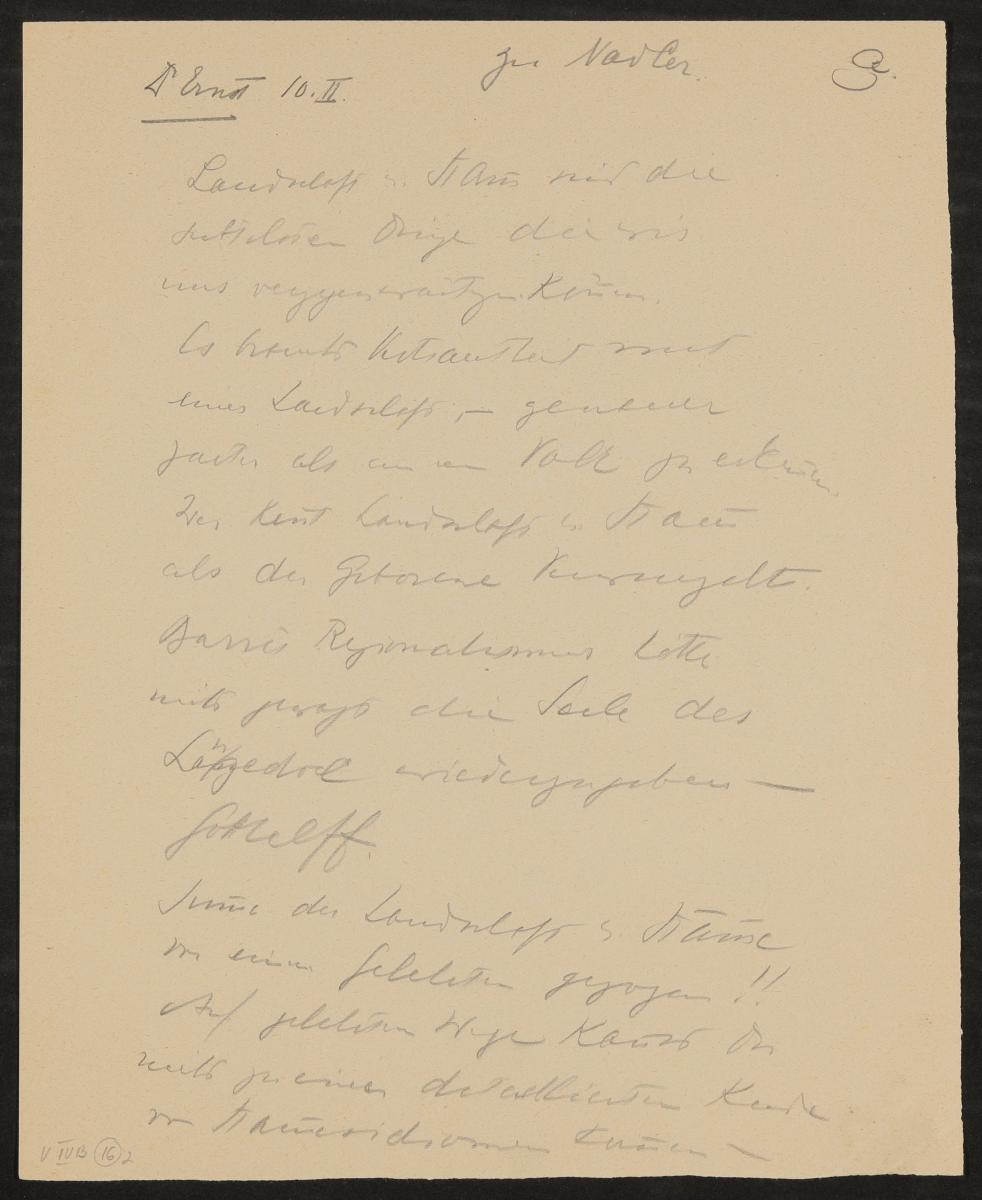 Dr Ernst 10. II.
Zu Nadler.
Landschaft u. Stam sind die
Dinge die wir
uns vergegenwärtigen können.
Es braucht Vertrautheit mit
einer Landschaft, – genauer
als an ein Volk zu erkennen
Wer kent Landschaft u. Stam
als der Geborene
Barrès Regionalismus hätte
nicht gewagt die Seele des
wiederzugeben —
Gotthelff.
Sume der Landschaft u. Stäme
von einem Gelehrten gezogen!!
Auf gelehrtem Wege kannst Du
nicht zu einer detaillierten Kunde
von komen —
V IV B 16 2